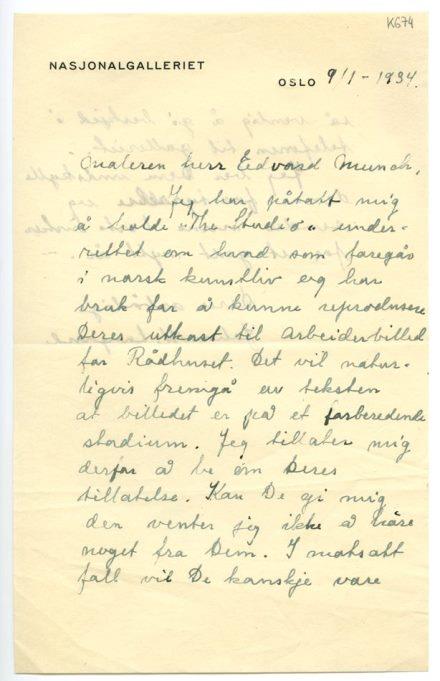 K674
NASJONALGALLERIET
OSLO 9/1 - 1934.
Maleren herr Edvard Munch,
Jeg har påtatt mig
å holde "The Studio" under-
rettet om hvad som foregår
i norsk kunstliv og har
bruk for å kunne reprodusere
Deres utkast til Arbeiderbilled
for Rådhuset. Det vil natur-
ligvis fremgå av teksten
at billedet er på et forberedende
stadium. Jeg tillater mig
derfor å be om Deres
tillatelse. Kan De gi mig
den venter jeg ikke å høre
noget fra Dem. I motsatt
fall vil De kanskje være